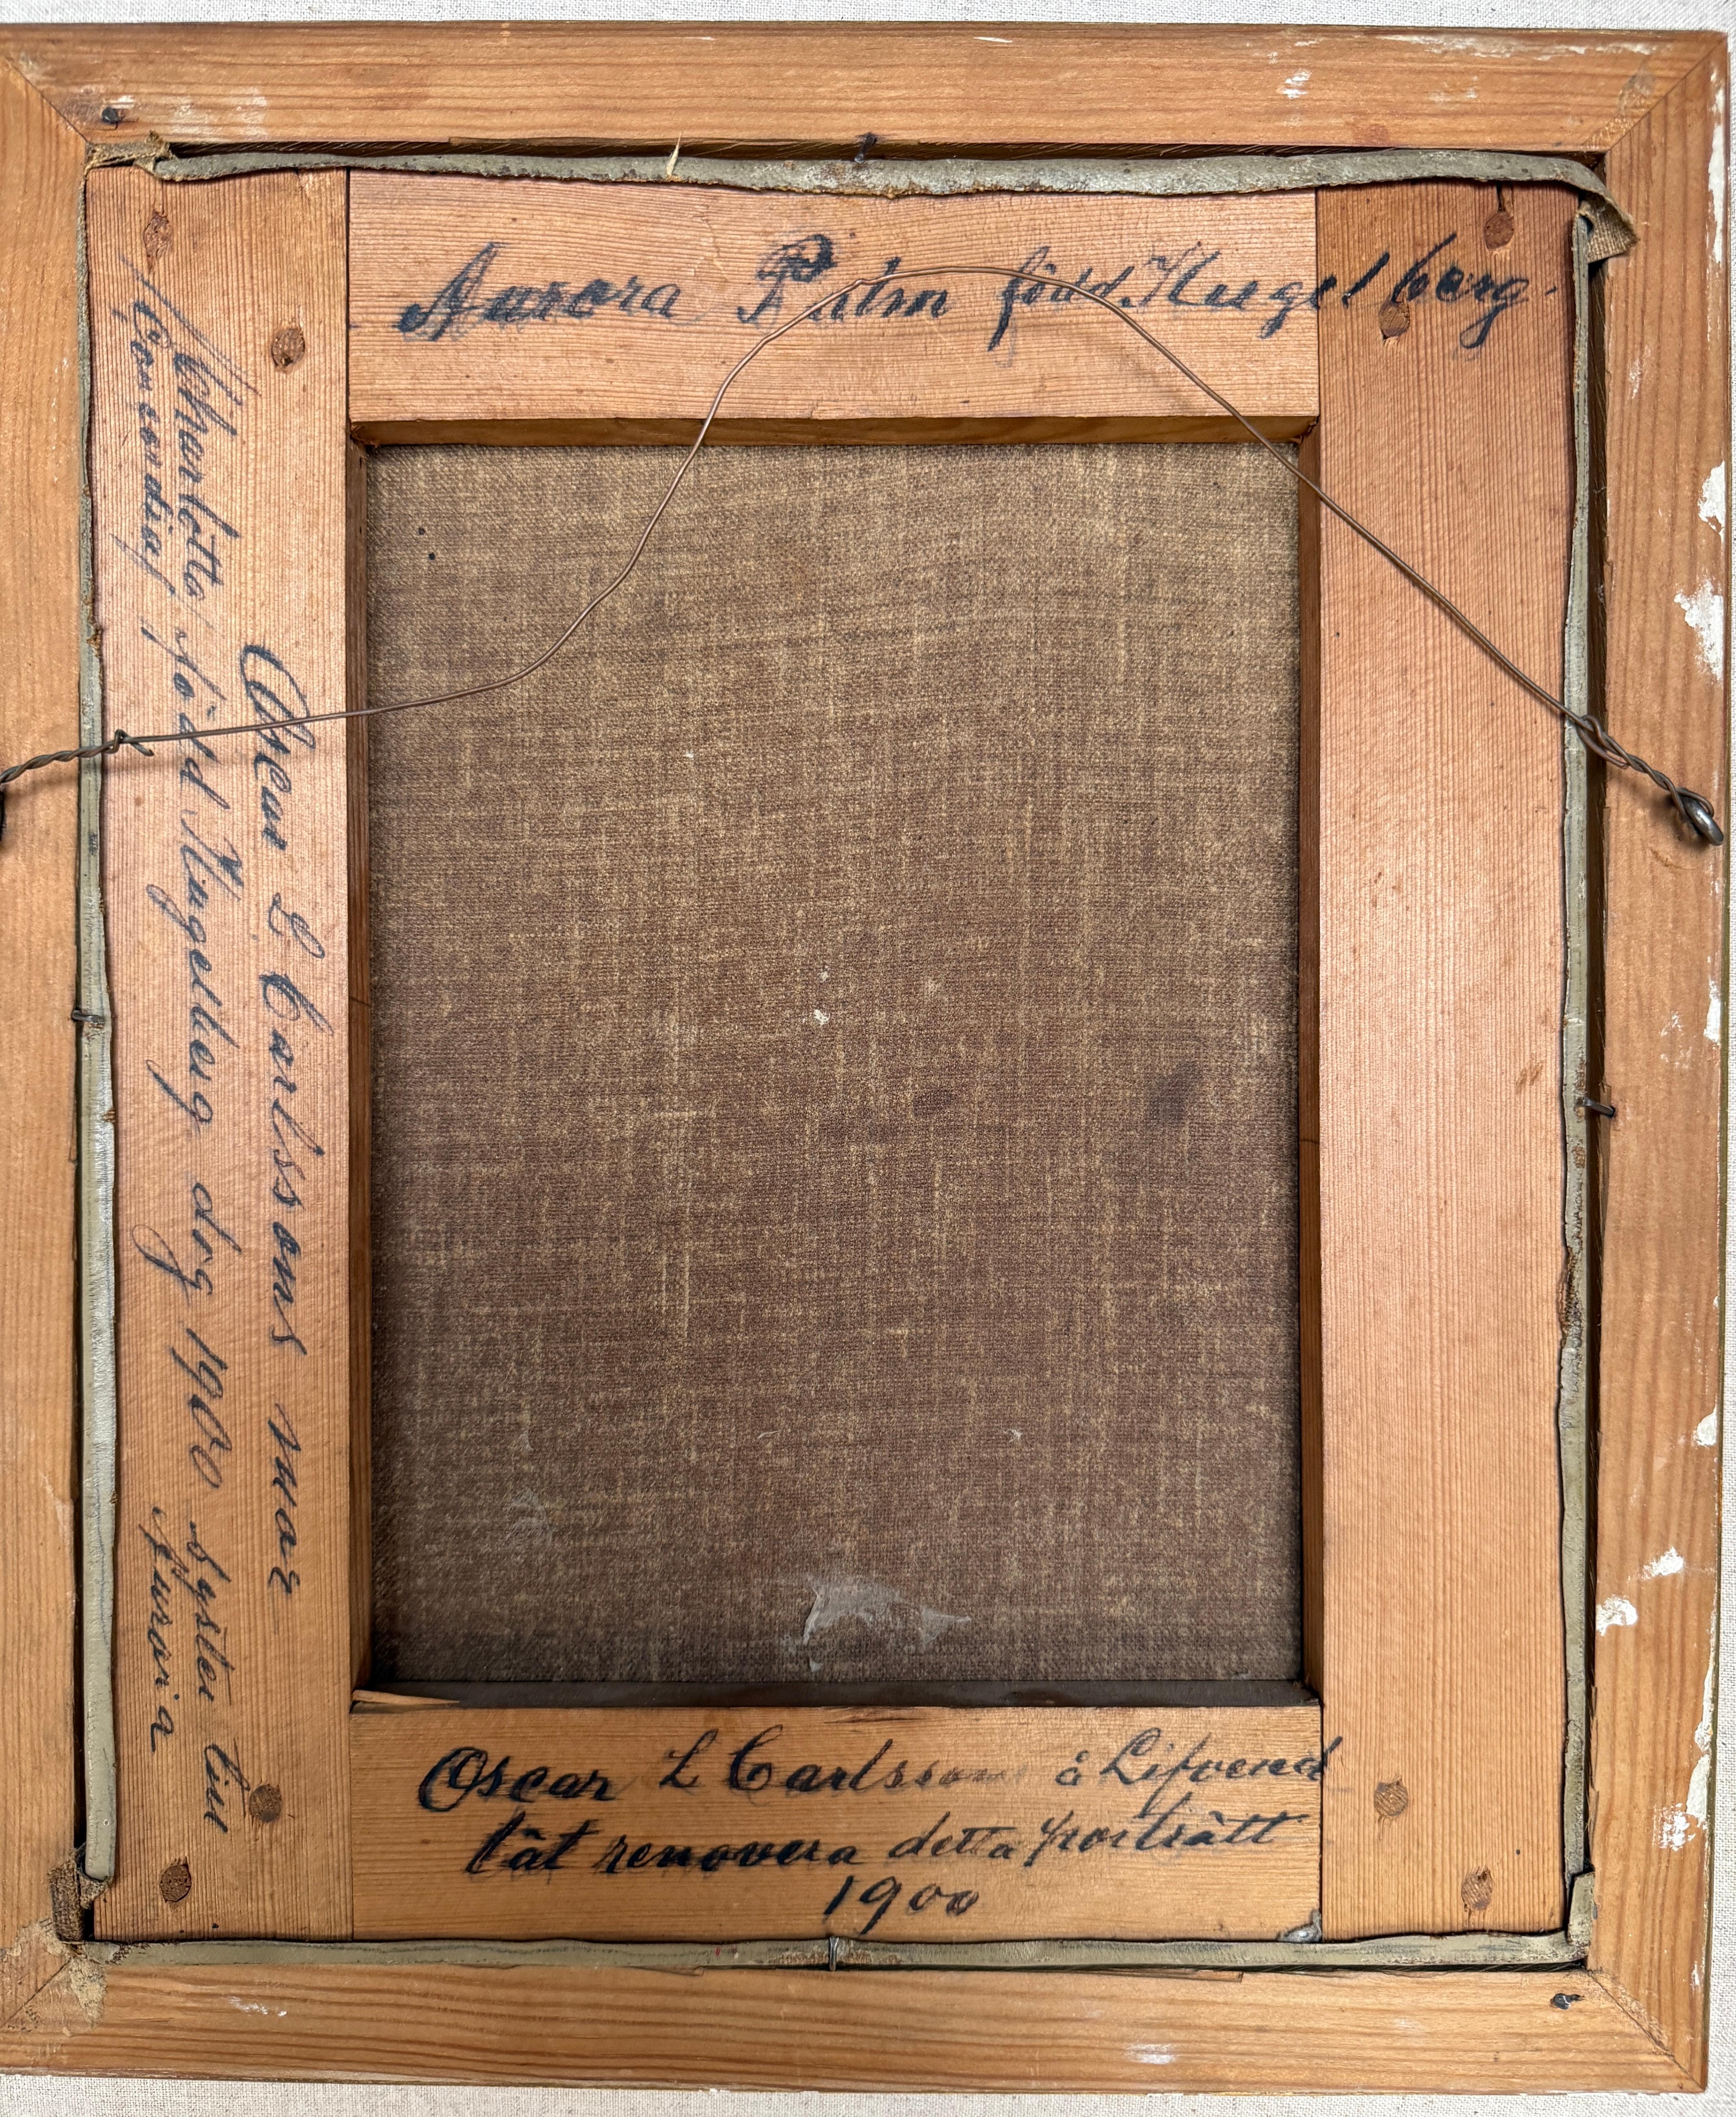 Aurora Palm född Kugelberg.
Oscar L Carlssons mor
Charlotta född Kugelberg dog 1900 syster till
Concordia Aurora
Oscar L Carlsson å Lifvend
låt renovera detta porträtt
1900